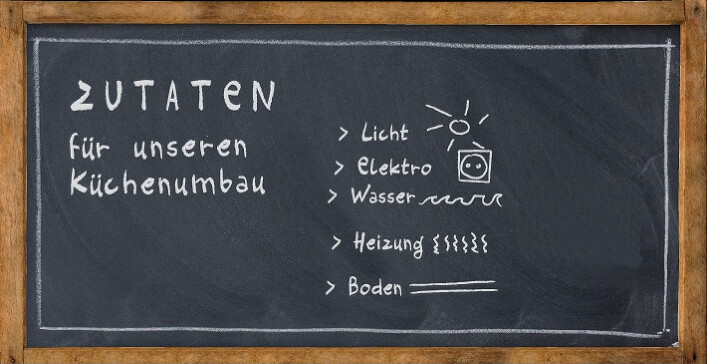 ZUTATEN
für unseren
Küchenumbau
> Licht
> Elektro
> Wasser
> Heizung
> Boden